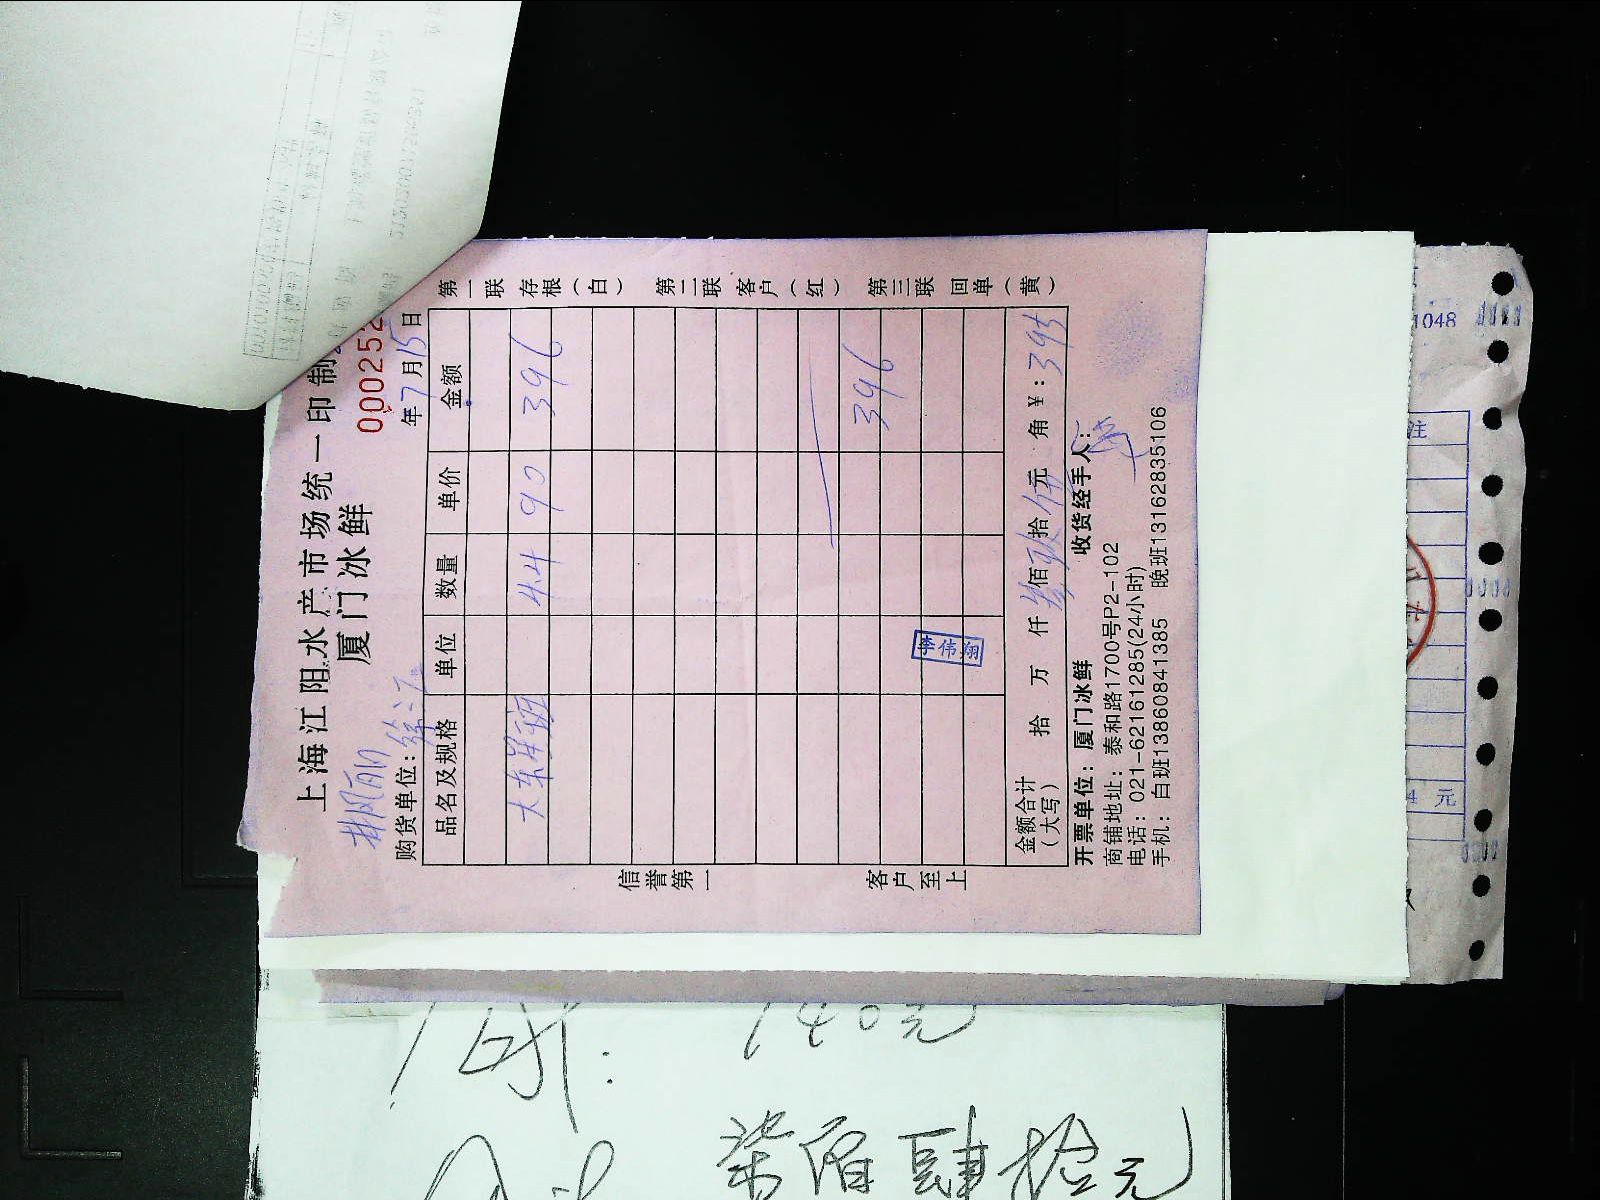 上海江阳水产市场统一印制
厦门冰鲜
000252
购货单位：徐汇
年7月15日
品名及规格 单位 数量 单价 金额
大东星斑 4.4 90 396
396
李伟翔
金额合计（大写） 拾 万 仟 叁佰玖拾伍元 角 ¥：395
开票单位：厦门冰鲜 收货经手人：
商铺地址：泰和路1700号P2-102
电话：021-62161285(24小时)
手机：白班13860841385 晚班13162835106
第一联 存根（白） 第二联 客户（红） 第三联 回单（黄）
信誉第一 客户至上
1048
注
4 元
140元
柒佰肆拾元